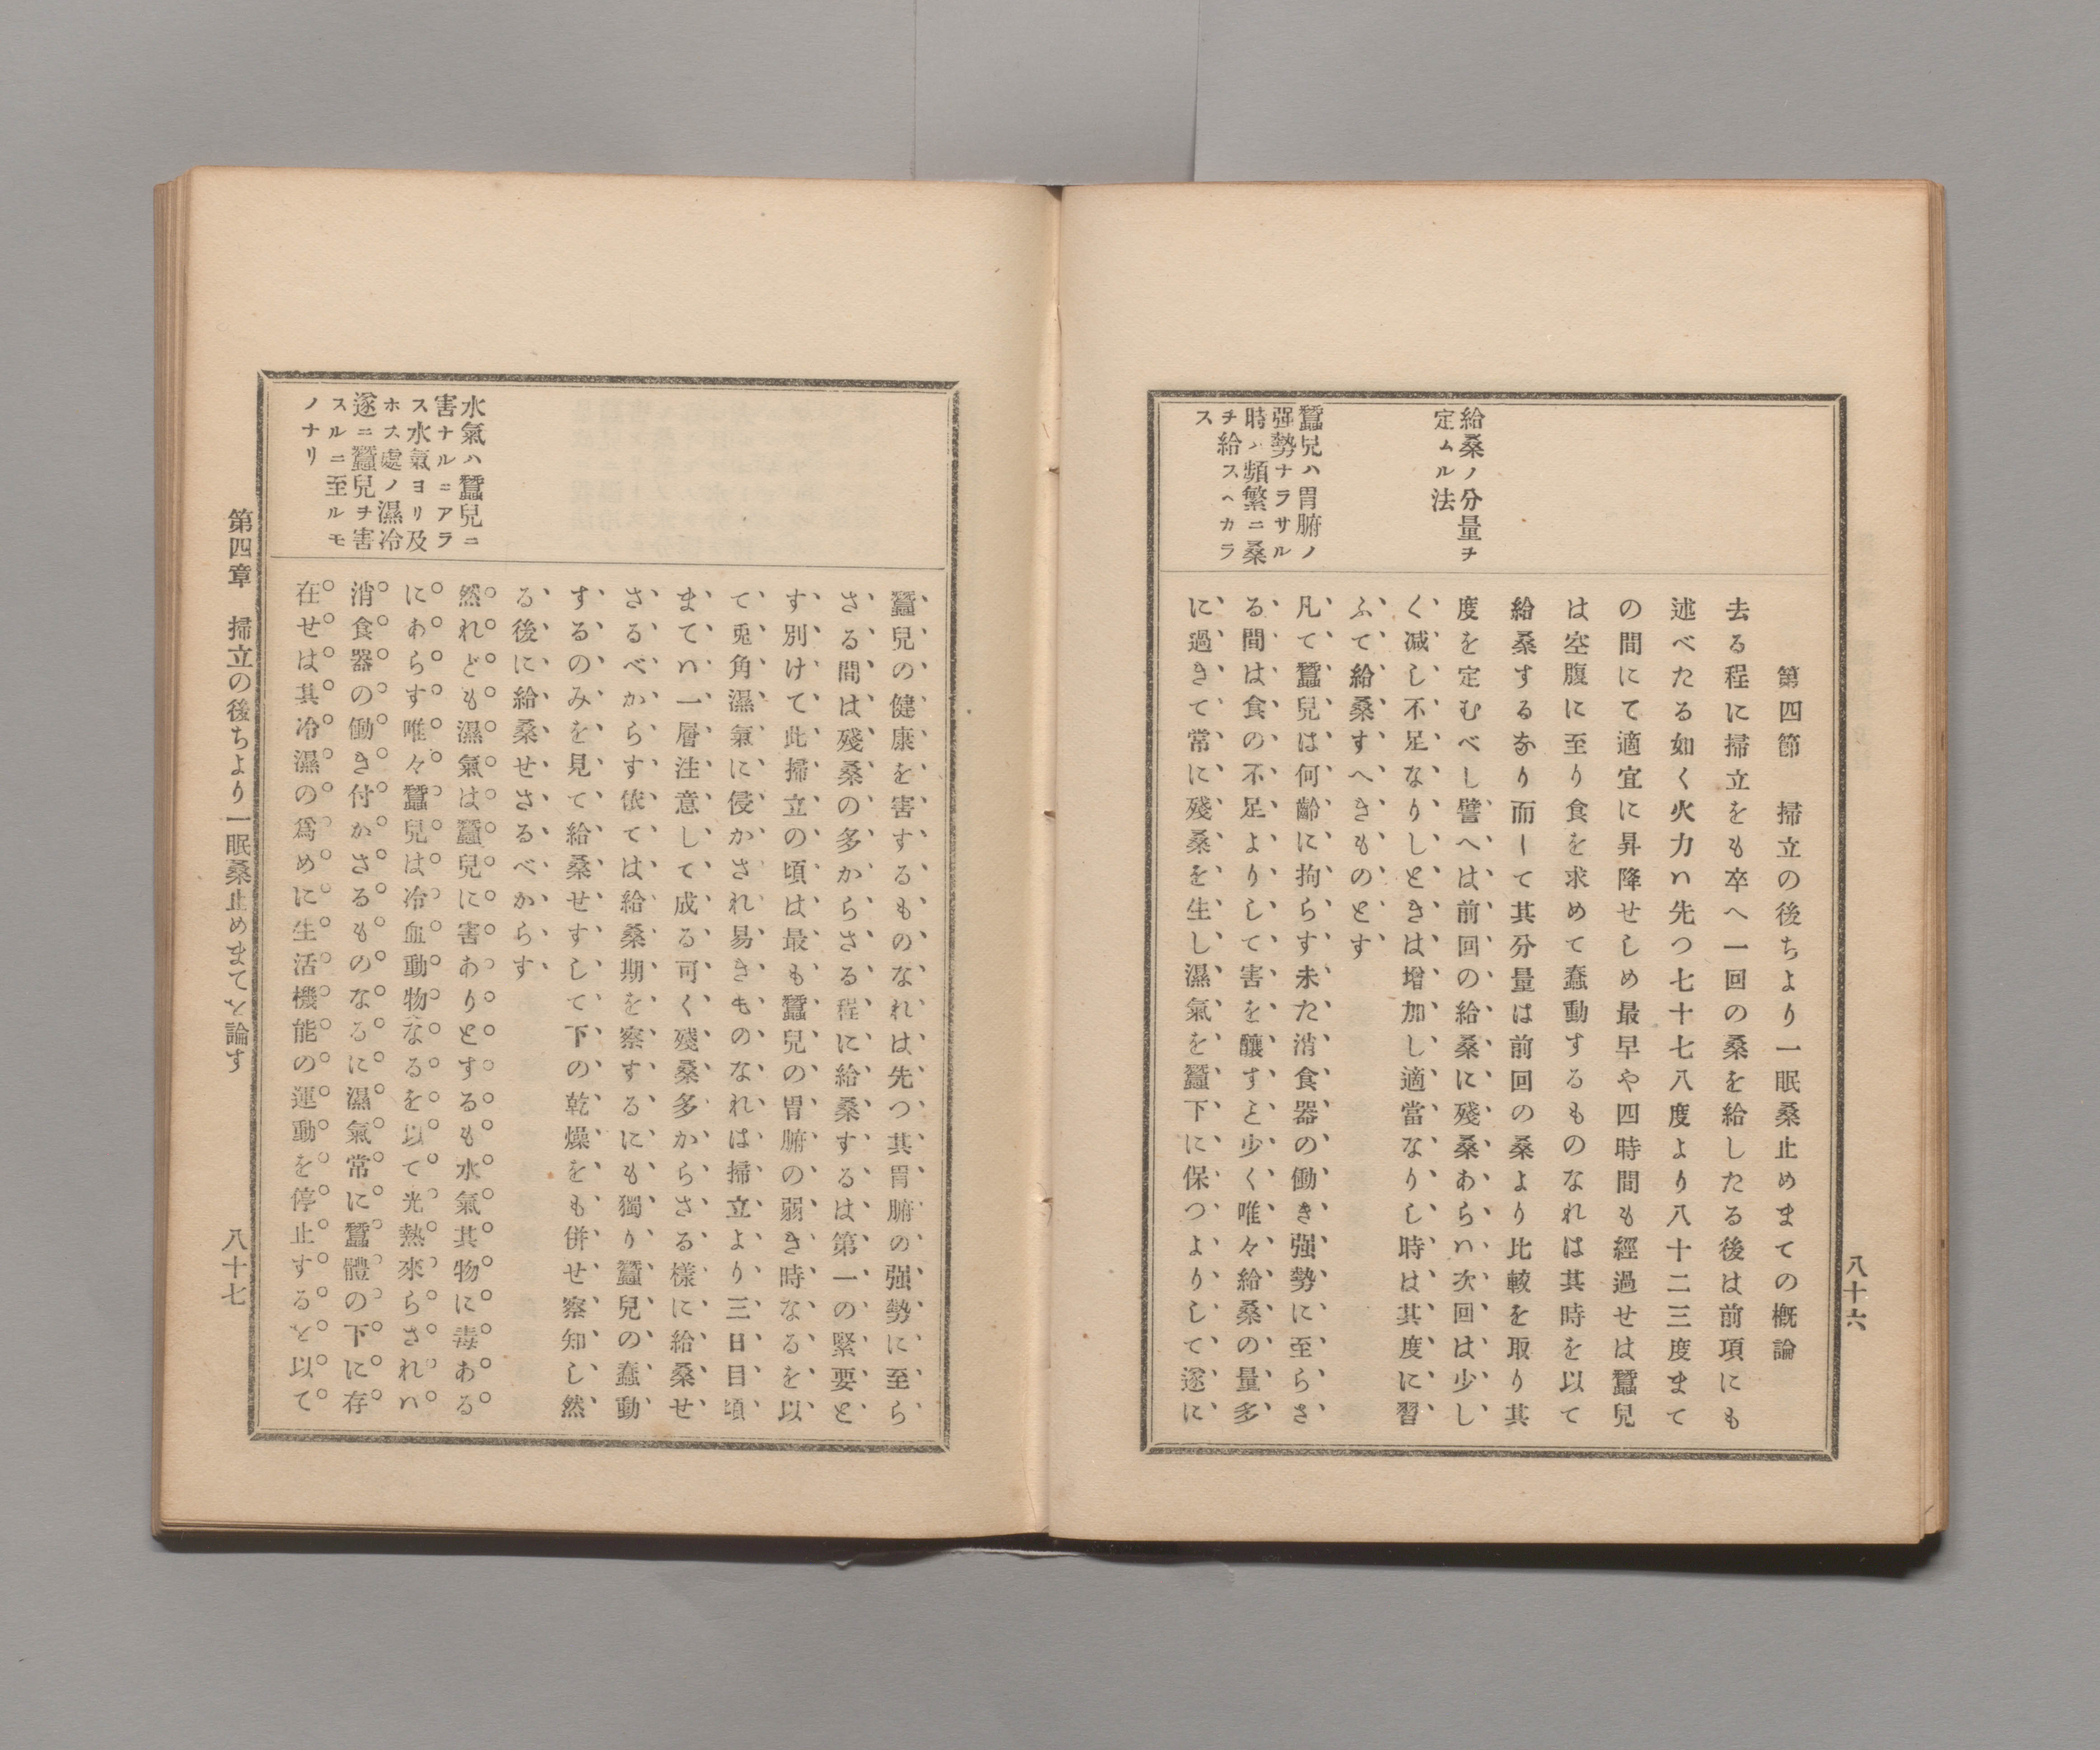 八十六
給桑ノ分量ヲ
定ムル法
蠶兒ハ胃腑ノ
强勢ナラサル
時ハ頻繁ニ桑
ヲ給スヘカラ
ス
第四節　掃立の後ちより一眠桑止めまての概論
去る程に掃立をも卒へ一回の桑を給したる後は前項にも
述べたる如く火力ハ先つ七十七八度より八十二三度まて
の間にて適宜に昇降せしめ最早や四時間も經過せは蠶兒
は空腹に至り食を求めて蠢動するものなれは其時を以て
給桑するなり而して其分量は前回の桑より比較を取り其
度を定むべし譬へは前回の給桑に殘桑あらハ次回は少し
く減し不足なりしときは增加し適當なりし時は其度に習
ふて給桑すへきものとす
凡て蠶兒は何齡に拘らす未た消食器の働き强勢に至らさ
る間は食の不足よりして害を釀すと少く唯々給桑の量多
に過きて常に殘桑を生し濕氣を蠶下に保つよりして遂に
水氣ハ蠶兒ニ
害ナルニアラ
ス水氣ヨリ及
ホス處ノ濕冷
遂ニ蠶兒ヲ害
スルニ至ルモ
ノナリ
蠶兒の健康を害するものなれは先つ其胃腑の强勢に至ら
さる間は殘桑の多からさる程に給桑するは第一の緊要と
す別けて此掃立の頃は最も蠶兒の胃腑の弱き時なるを以
て兎角濕氣に侵かされ易きものなれは掃立より三日目頃
まてハ一層注意して成る可く殘桑多からさる樣に給桑せ
さるべからす依ては給桑期を察するにも獨り蠶兒の蠢動
するのみを見て給桑せすして下の乾燥をも併せ察知し然
る後に給桑せさるべからす
然れども濕氣は蠶兒に害ありとするも水氣其物に毒ある
にあらす唯々蠶兒は冷血動物なるを以て光熱來らされハ
消食器の働き付かさるものなるに濕氣常に蠶體の下に存
在せは其冷濕の爲めに生活機能の運動を停止するを以て
第四章　掃立の後ちより一眠桑止めまてを論す
八十七